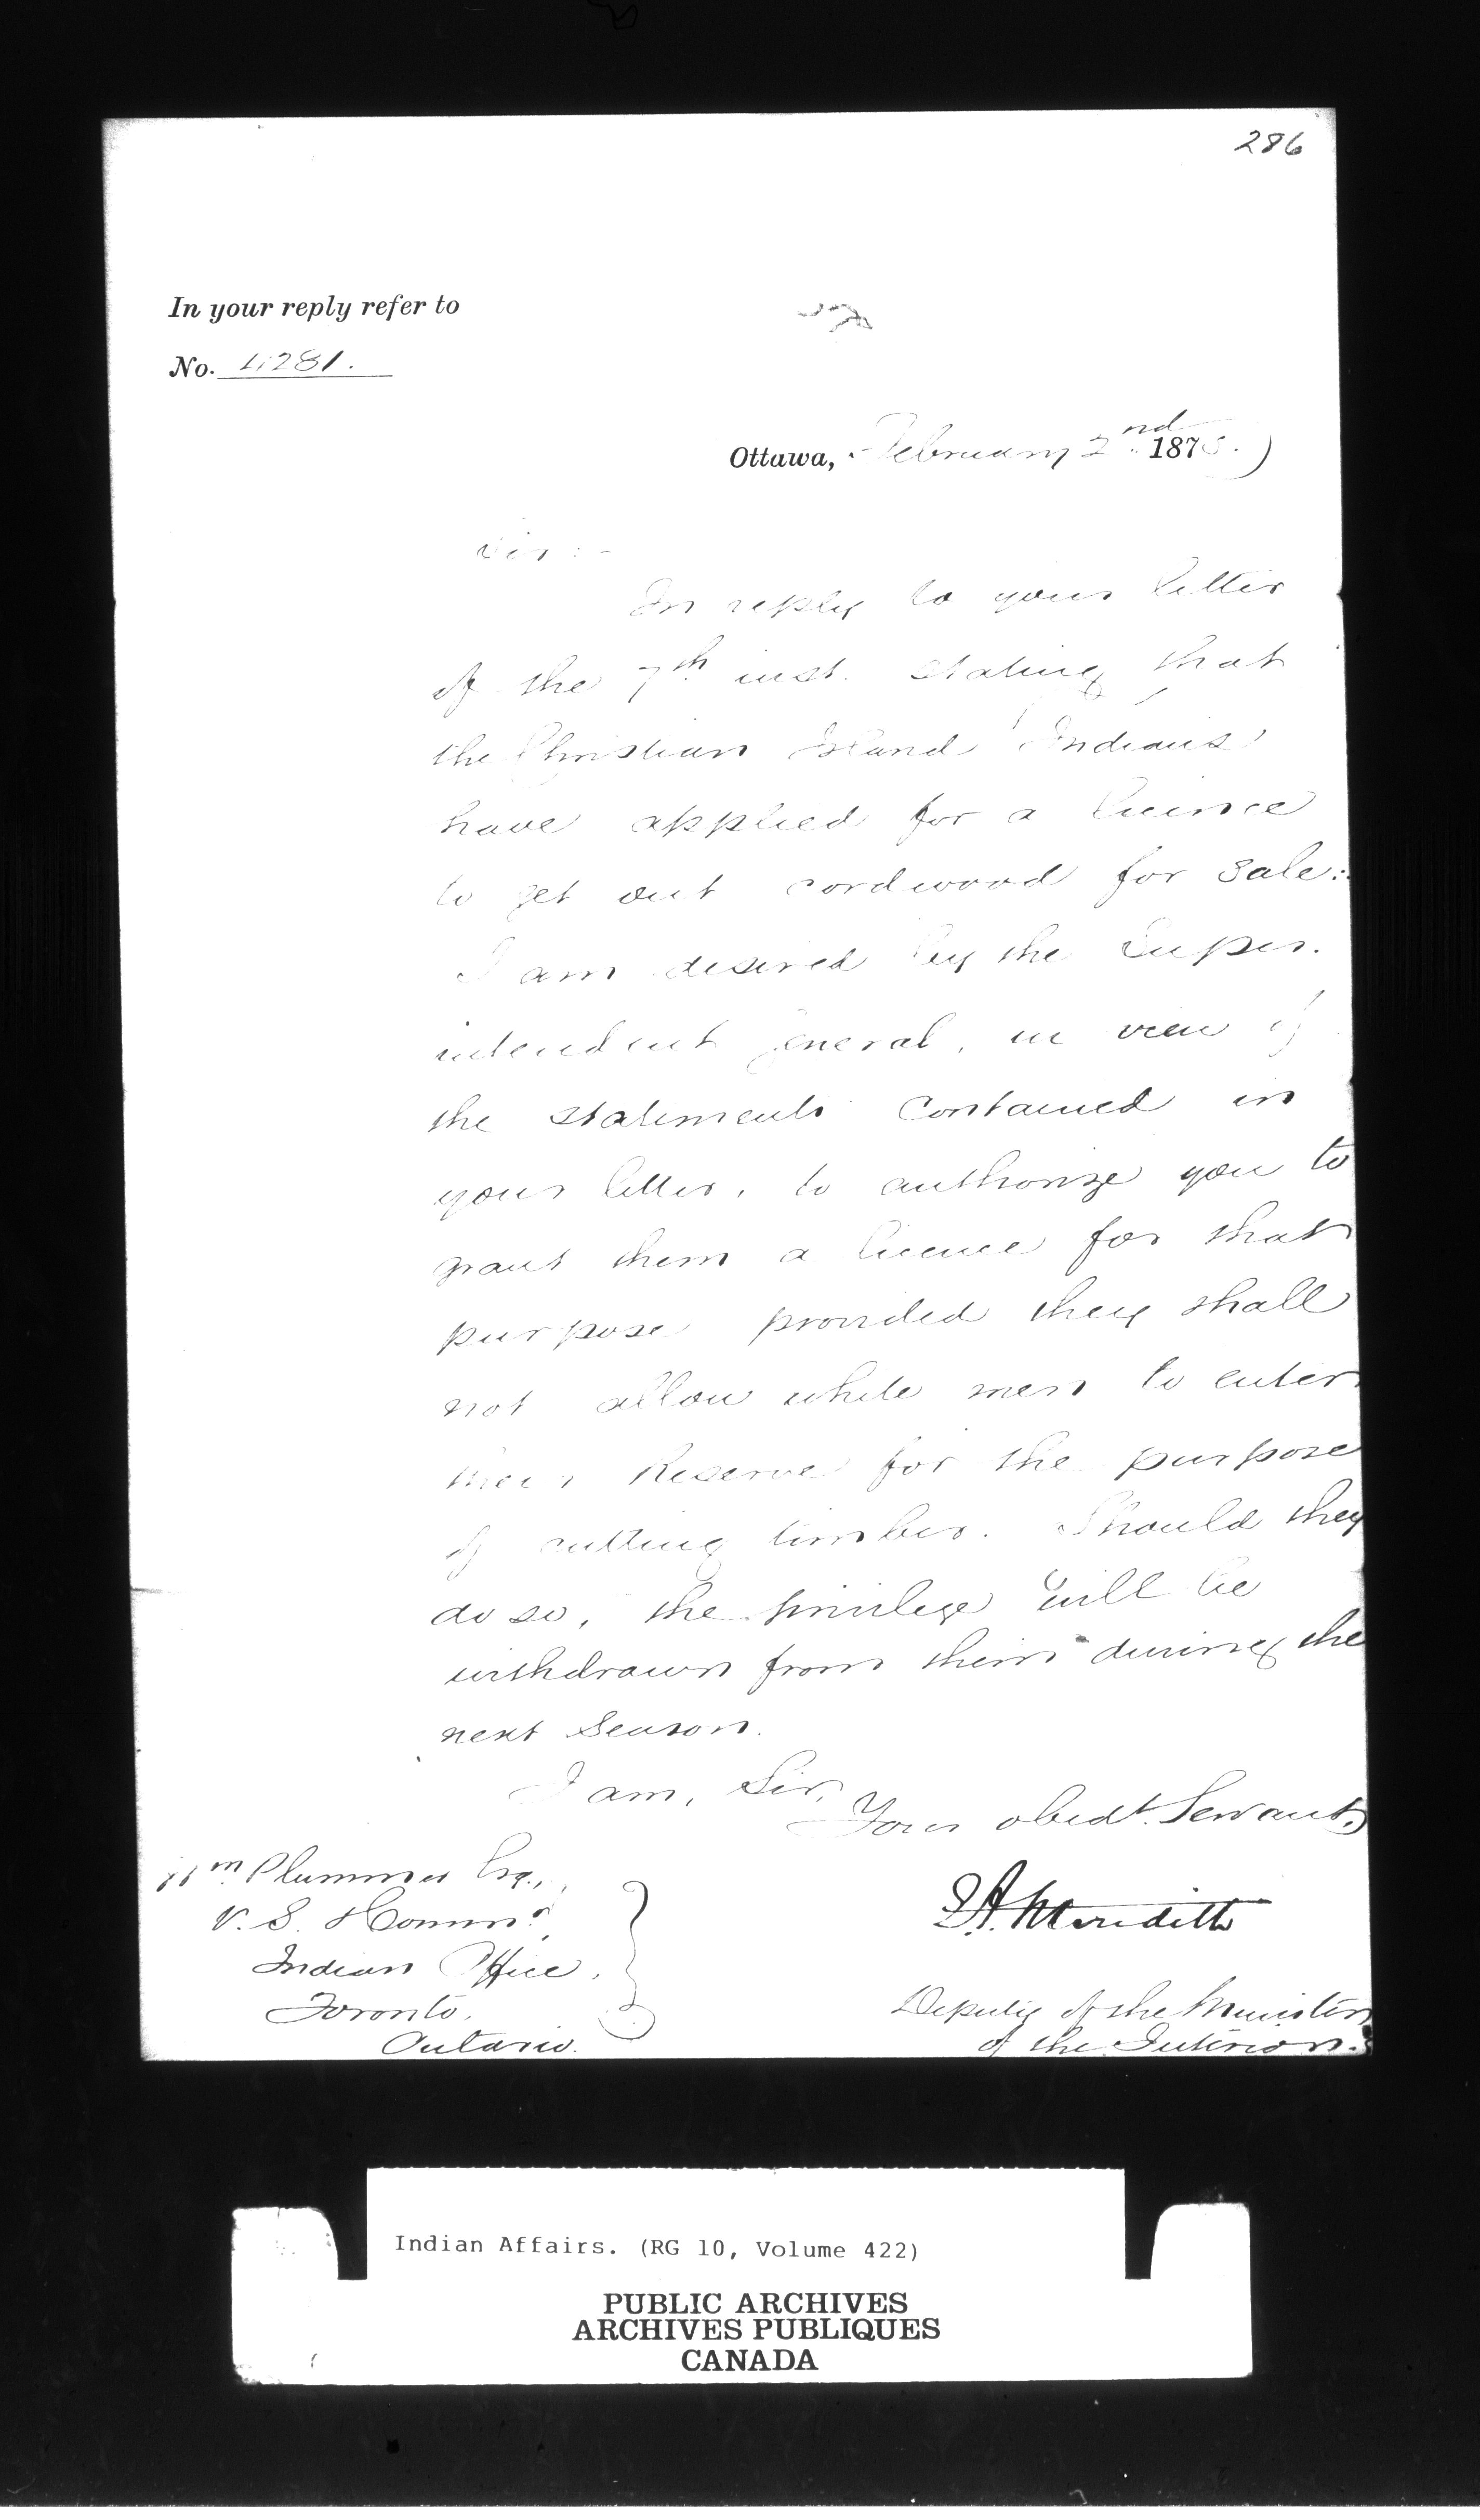 286
In your reply refer to
No. 4281.
Ottawa, February 2nd 1875.
Sir:-
In reply to your letter
of the 7th inst. stating that
the Christian Island Indians
have applied for a licence
to get out cordwood for sale:
I am desired by the Super-
intendent General, in view of
the statements contained in
your letter, to authorize you to
grant them a licence for that
purpose provided they shall
not allow white men to enter
their Reserve for the purpose
of cutting timber. Should they
do so, the privilege will be
withdrawn from them during the
next Season.
I am, Sir,
Your obedt. Servant,
Wm Plummer Esq.,
V. S. & Commr.
Indian Office,
Toronto,
Ontario.
E.A. Meredith
Deputy of the Minister
of the Interior.
Indian Affairs. (RG 10, Volume 422)
PUBLIC ARCHIVES
ARCHIVES PUBLIQUES
CANADA